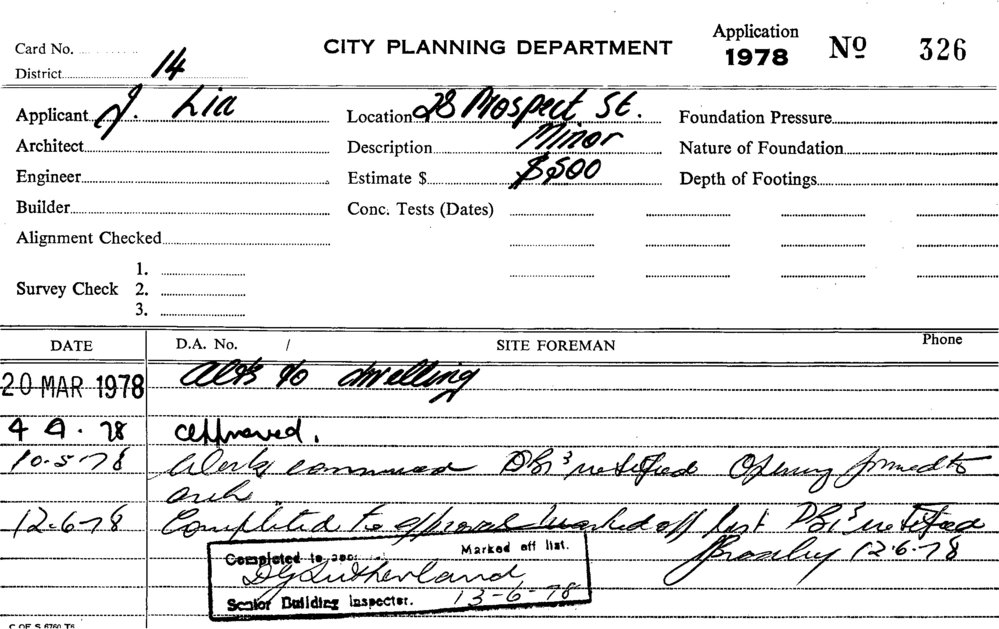 Card No.
District 14
CITY PLANNING DEPARTMENT
Application
1978 Nº 326
Applicant J. Lia
Architect
Engineer
Builder
Alignment Checked
Survey Check 1.
2.
3.
Location 28 Prospect St.
Description Minor
Estimate $ $500
Conc. Tests (Dates)
Foundation Pressure
Nature of Foundation
Depth of Footings
DATE D.A. No. / SITE FOREMAN Phone
20 MAR 1978 Alts to dwelling
4 4. 78 approved.
10-5-78 Work commenced DBI notified Opening formed to
arch
12-6-78 Completed to approval marked off list DBI notified
12.6.78
Completed to Marked off list.
D G Sutherland
Senior Building Inspector. 13-6-78
C OF S 6760 T5